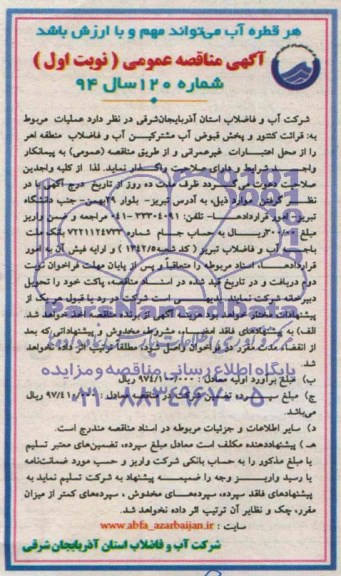 هر قطره آب می‌تواند مهم و با ارزش باشد
آگهی مناقصه عمومی ( نوبت اول )
شماره ۱۲۰ سال ۹۴
شرکت آب و فاضلاب استان آذربایجان‌شرقی در نظر دارد عملیات مربوط
به: قرائت کنتور و پخش قبوض آب مشترکین آب و فاضلاب منطقه اهر
را از محل اعتبارات غیرعمرانی و از طریق مناقصه (عمومی) به پیمانکار
واجد شرایط و دارای صلاحیت واگذار نماید. لذا از کلیه واجدین
صلاحیت دعوت می‌گردد ظرف مدت ده روز از تاریخ درج آگهی با در
نظر گرفتن موارد ذیل، به آدرس تبریز- بلوار ۲۹بهمن- جنب دانشگاه
تبریز- امور قراردادها- تلفن: ۳۳۳۰۴۰۹۱-۰۴۱ مراجعه و ضمن واریز
مبلغ ریال به حساب جام شماره بانک ملت
باجه آب و فاضلاب تبریز ( کد شعبه ۱۳۴۲/۵ ) و ارایه فیش آن به امور
قراردادها، اسناد مربوطه را متعاقباً و پس از پایان مهلت فراخوان نوبت
دوم دریافت و در تاریخ قید شده در اسناد مناقصه، پاکت خود را تحویل
دبیرخانه شرکت نمایند. بدیهی است شرکت در رد یا قبول هر یک از
پیشنهادات مختار خواهد بود. هزینه آگهی از برنده مناقصه اخذ خواهد شد.
الف) به پیشنهادهای فاقد امضاء، مشروط، مخدوش و پیشنهاداتی که بعد
از انقضاء مدت مقرر در فراخوان واصل شود، مطلقاً ترتیب اثر داده نخواهد
شد.
پایگاه اطلاع رسانی مناقصه و مزایده
ب) مبلغ برآورد اولیه معادل: ریال
۰۲۱-۸۸۳۴۹۶۷۰-۵
ج) مبلغ سپرده شرکت در مناقصه معادل: ریال
می‌باشد.
د) سایر اطلاعات و جزئیات مربوطه در اسناد مناقصه مندرج است.
هـ) پیشنهاددهنده مکلف است معادل مبلغ سپرده، تضمین‌های معتبر تسلیم
یا مبلغ مذکور را به حساب بانکی شرکت واریز و حسب مورد ضمانت‌نامه
یا رسید واریز وجه را ضمیمه پیشنهاد به شرکت تسلیم نماید به
پیشنهادهای فاقد سپرده، سپرده‌های مخدوش ، سپرده‌های کمتر از میزان
مقرر، چک و نظایر آن ترتیب اثر داده نخواهد شد.
سایت : www.abfa_azarbaijan.ir
شرکت آب و فاضلاب استان آذربایجان شرقی